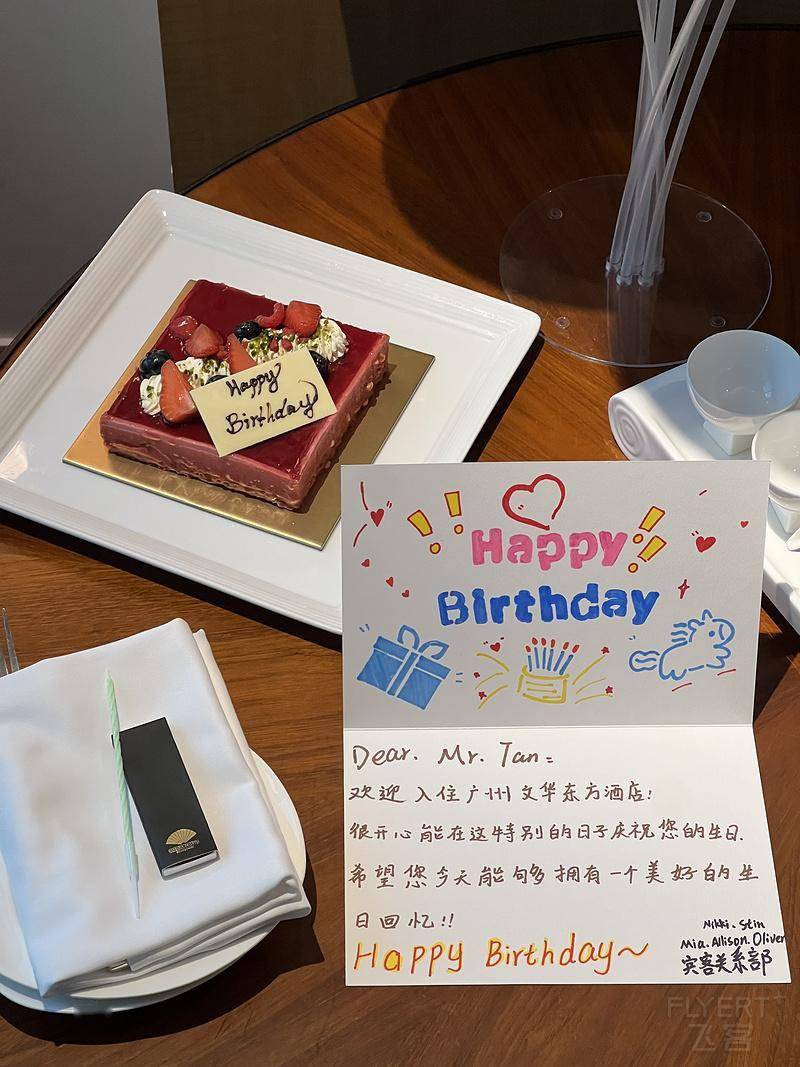 Happy
Birthday
Happy
Birthday
Dear. Mr. Tan:
欢迎入住广州文华东方酒店!
很开心能在这特别的日子庆祝您的生日.
希望您今天能够拥有一个美好的生
日回忆!!
Happy Birthday~
Nikki. Stin
Mia. Allison. Oliver
宾客关系部
FLYERT+
飞客